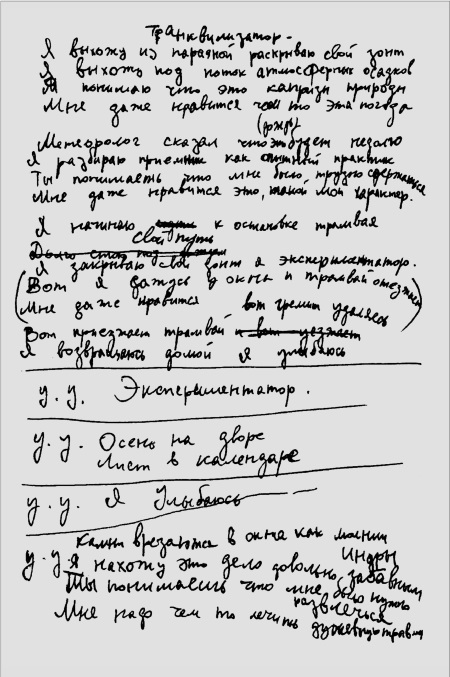 Транквилизатор.
Я выхожу из парадной раскрываю свой зонт
Я выхожу под поток атмосферных осадков
Я понимаю что это капризы природы
Мне даже нравится чем то эта погода
(дождь)
Метеоролог сказал что будет недолго
Я разбираю приемник как опытный практик
Ты понимаешь что мне было трудно сдержаться
Мне даже нравится это, такой мой характер.
Я начинаю к остановке трамвая
свой путь
Долго стою под
Я закрываю свой зонт я экспериментатор.
(Вот я сажусь у окна и трамвай отъезжает
Мне даже нравится вот гремит удаляясь)
Вот приезжает трамвай и вот уезжает
Я возвращаюсь домой я улыбаюсь
у. у. Экспериментатор.
у. у. Осень на дворе
Лист в календаре
у. у. Я Улыбаюсь
Камни врезаются в окна как молнии
Индры
у. у. Я нахожу это дело довольно забавным
Ты понимаешь что мне было нужно
развлечься
Мне надо чем то лечить душевную травму